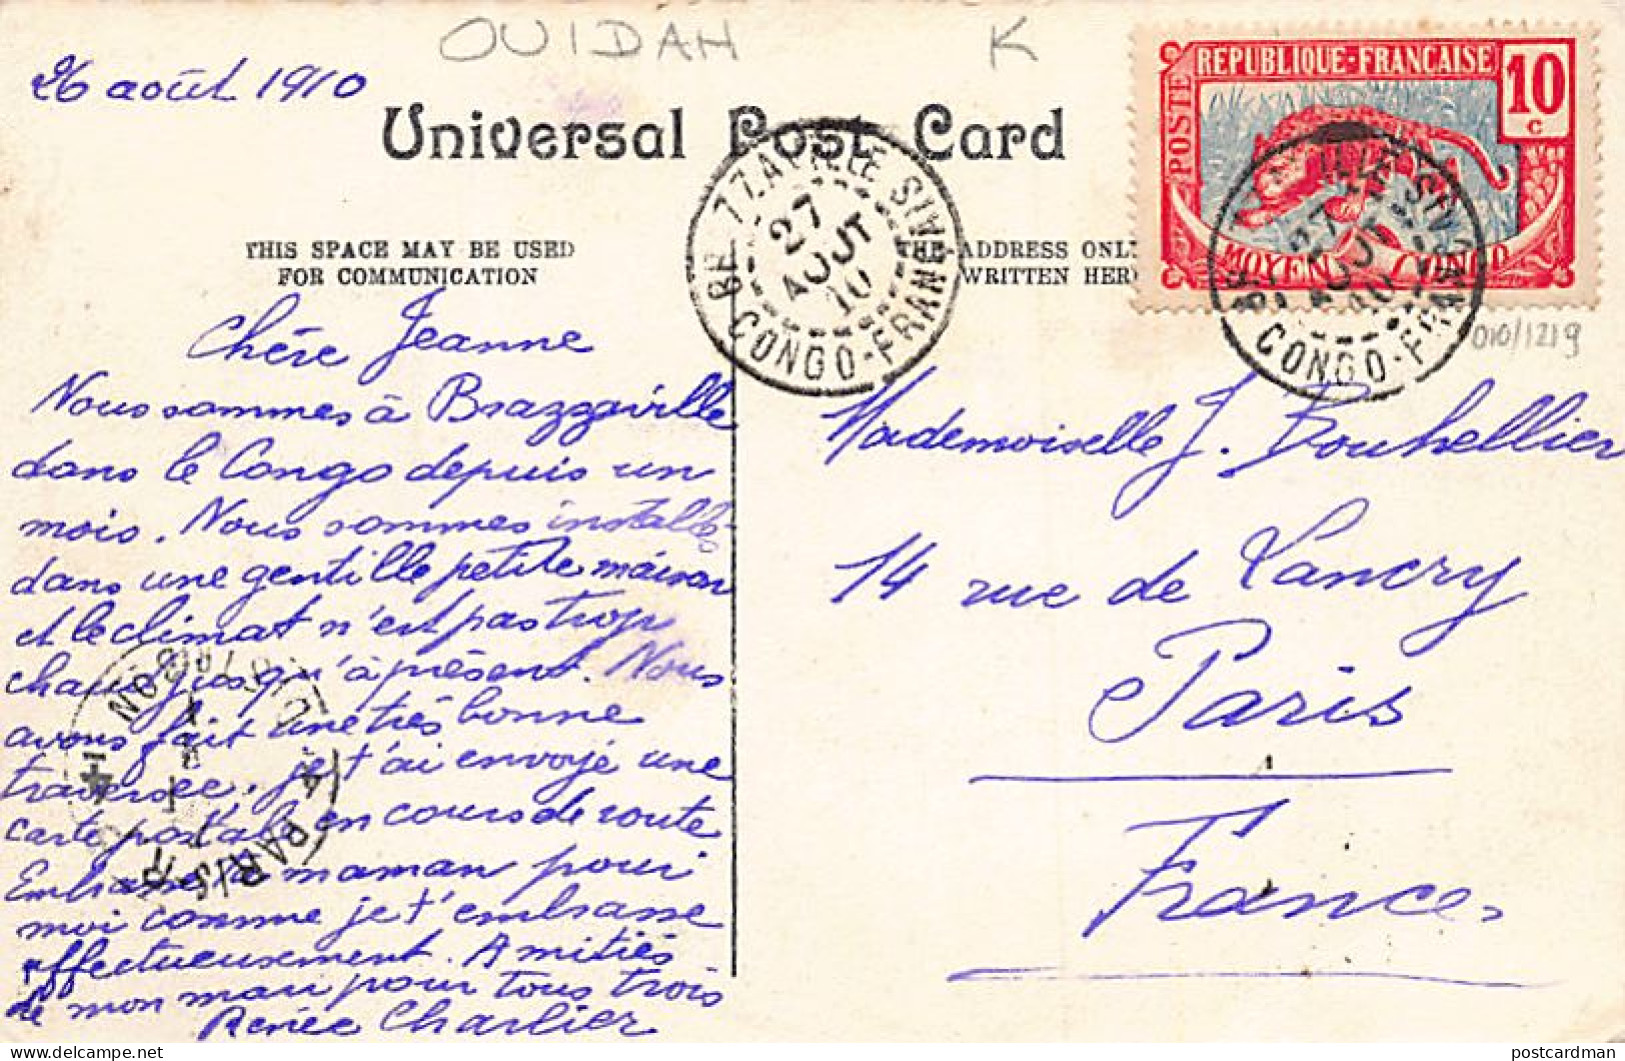 OUIDAH
K
26 août 1910
Universal Post Card
REPUBLIQUE-FRANÇAISE
10
C
POSTE
MOYEN CONGO
27
AOUT
10
CONGO-FRANÇAIS
THIS SPACE MAY BE USED
FOR COMMUNICATION
THE ADDRESS ONLY
WRITTEN HERE
010/1219
Chère Jeanne
Nous sommes à Brazzaville
dans le Congo depuis un
mois. Nous sommes installés
dans une gentille petite maison
et le climat n'est pas trop
chaud jusqu'à présent. Nous
avons fait une très bonne
traversée. je t'ai envoyé une
carte postale en cours de route
Embrasse ta maman pour
moi comme je t'embrasse
affectueusement. Amitiés
de mon mari pour tous trois
Renée Charlier
PARIS
Mademoiselle J. Bouhellier
14 rue de Lancry
Paris
France
delcampe.net
postcardman